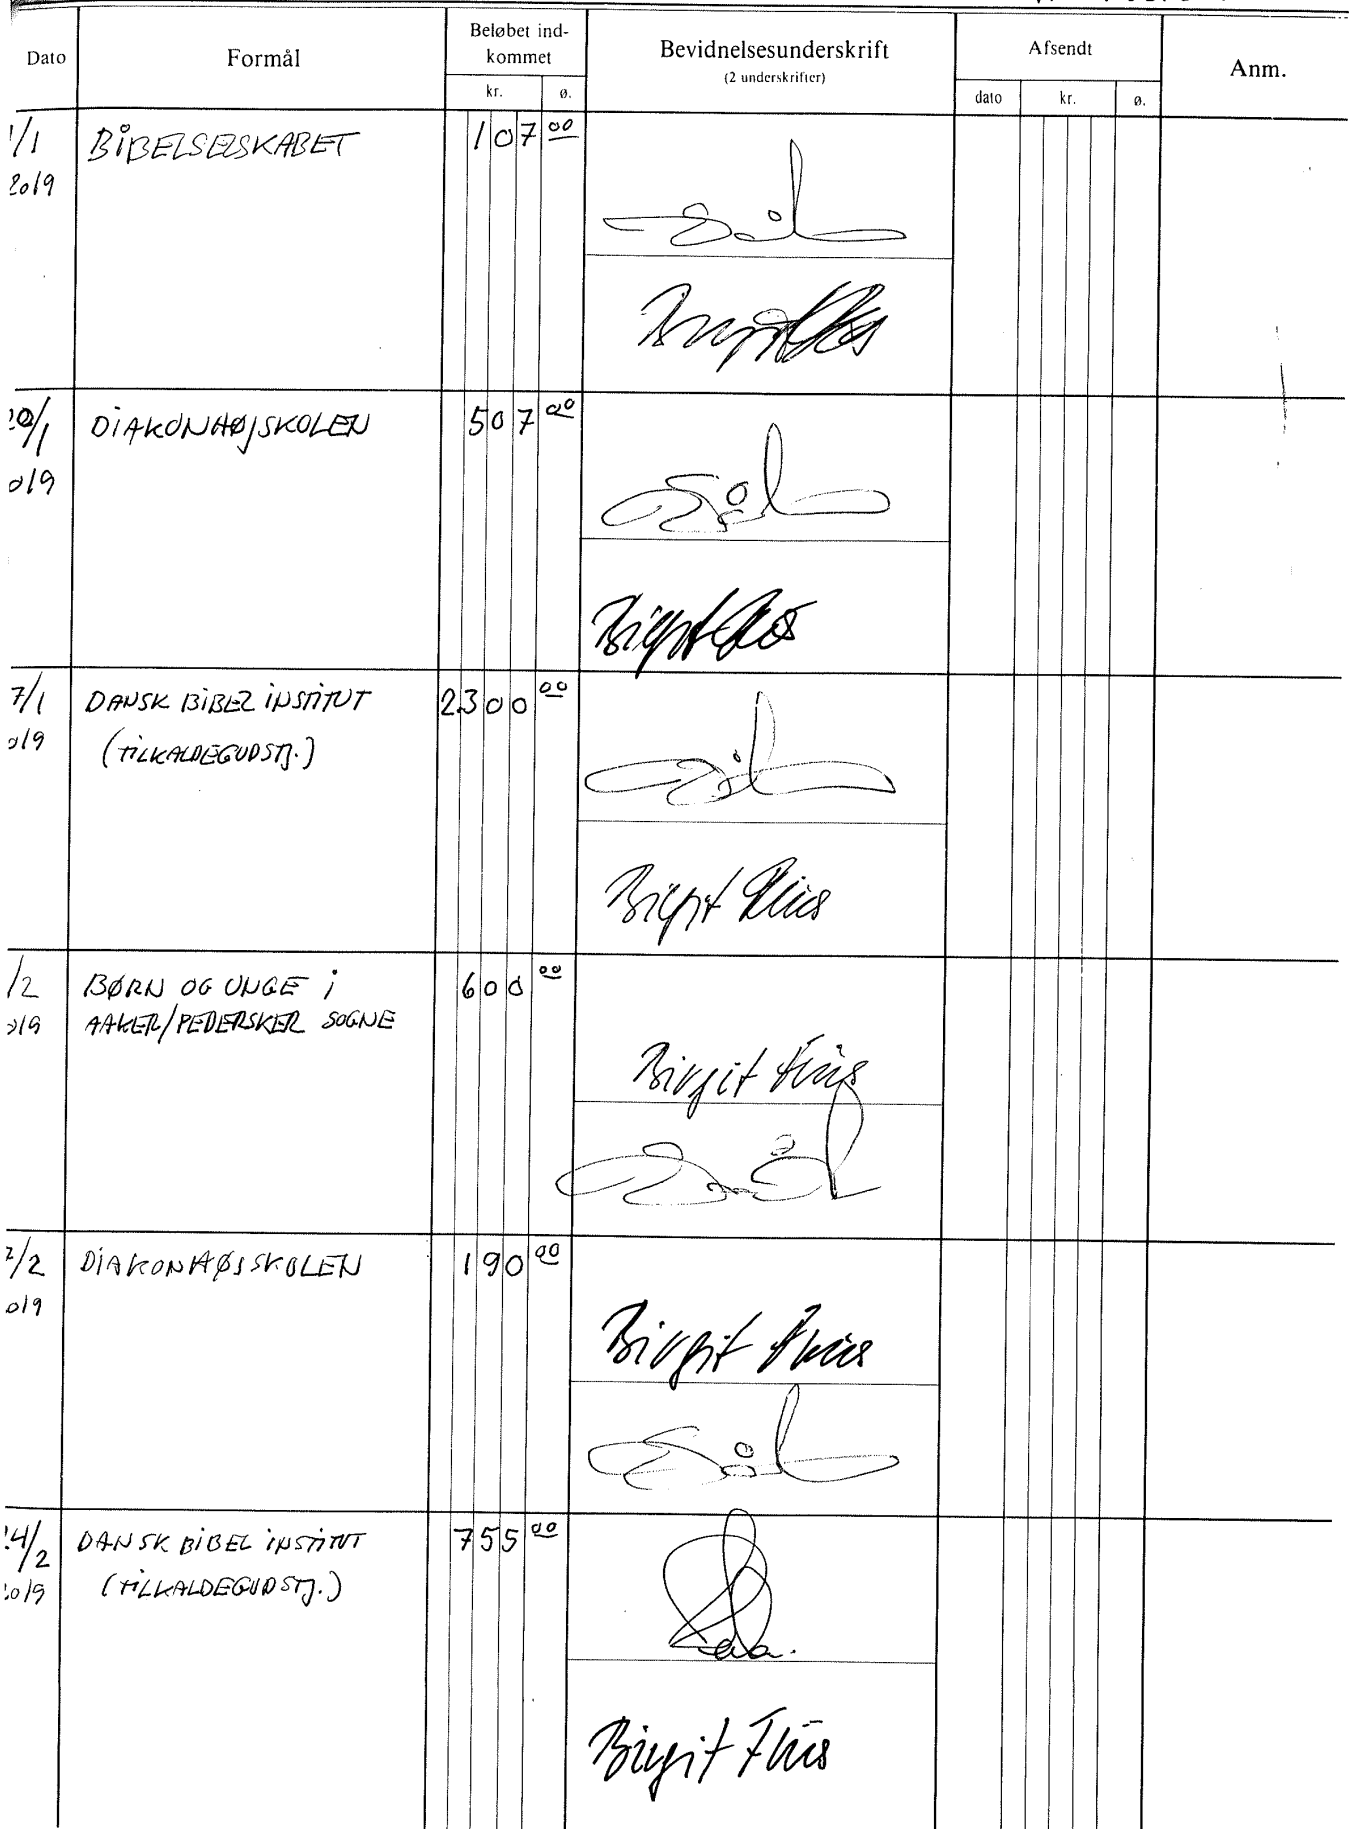 Dato
Formål
Beløbet ind-
kommet
kr.
ø.
Bevidnelsesunderskrift
(2 underskrifter)
Afsendt
dato
kr.
ø.
Anm.
1/1
2019
BIBELSELSKABET
107 00
DIAKONHØJSKOLEN
507 00
7/1
DANSK BIBEL INSTITUT
(TILKALDEGUDSTJ.)
2300 00
/2
BØRN OG UNGE I
AAKER/PEDERSKER SOGNE
600 00
Birgit
2/2
DIAKONHØJSKOLEN
190 00
Birgit
4/2
DANSK BIBEL INSTITUT
(TILKALDEGUDSTJ.)
755 00
Birgit